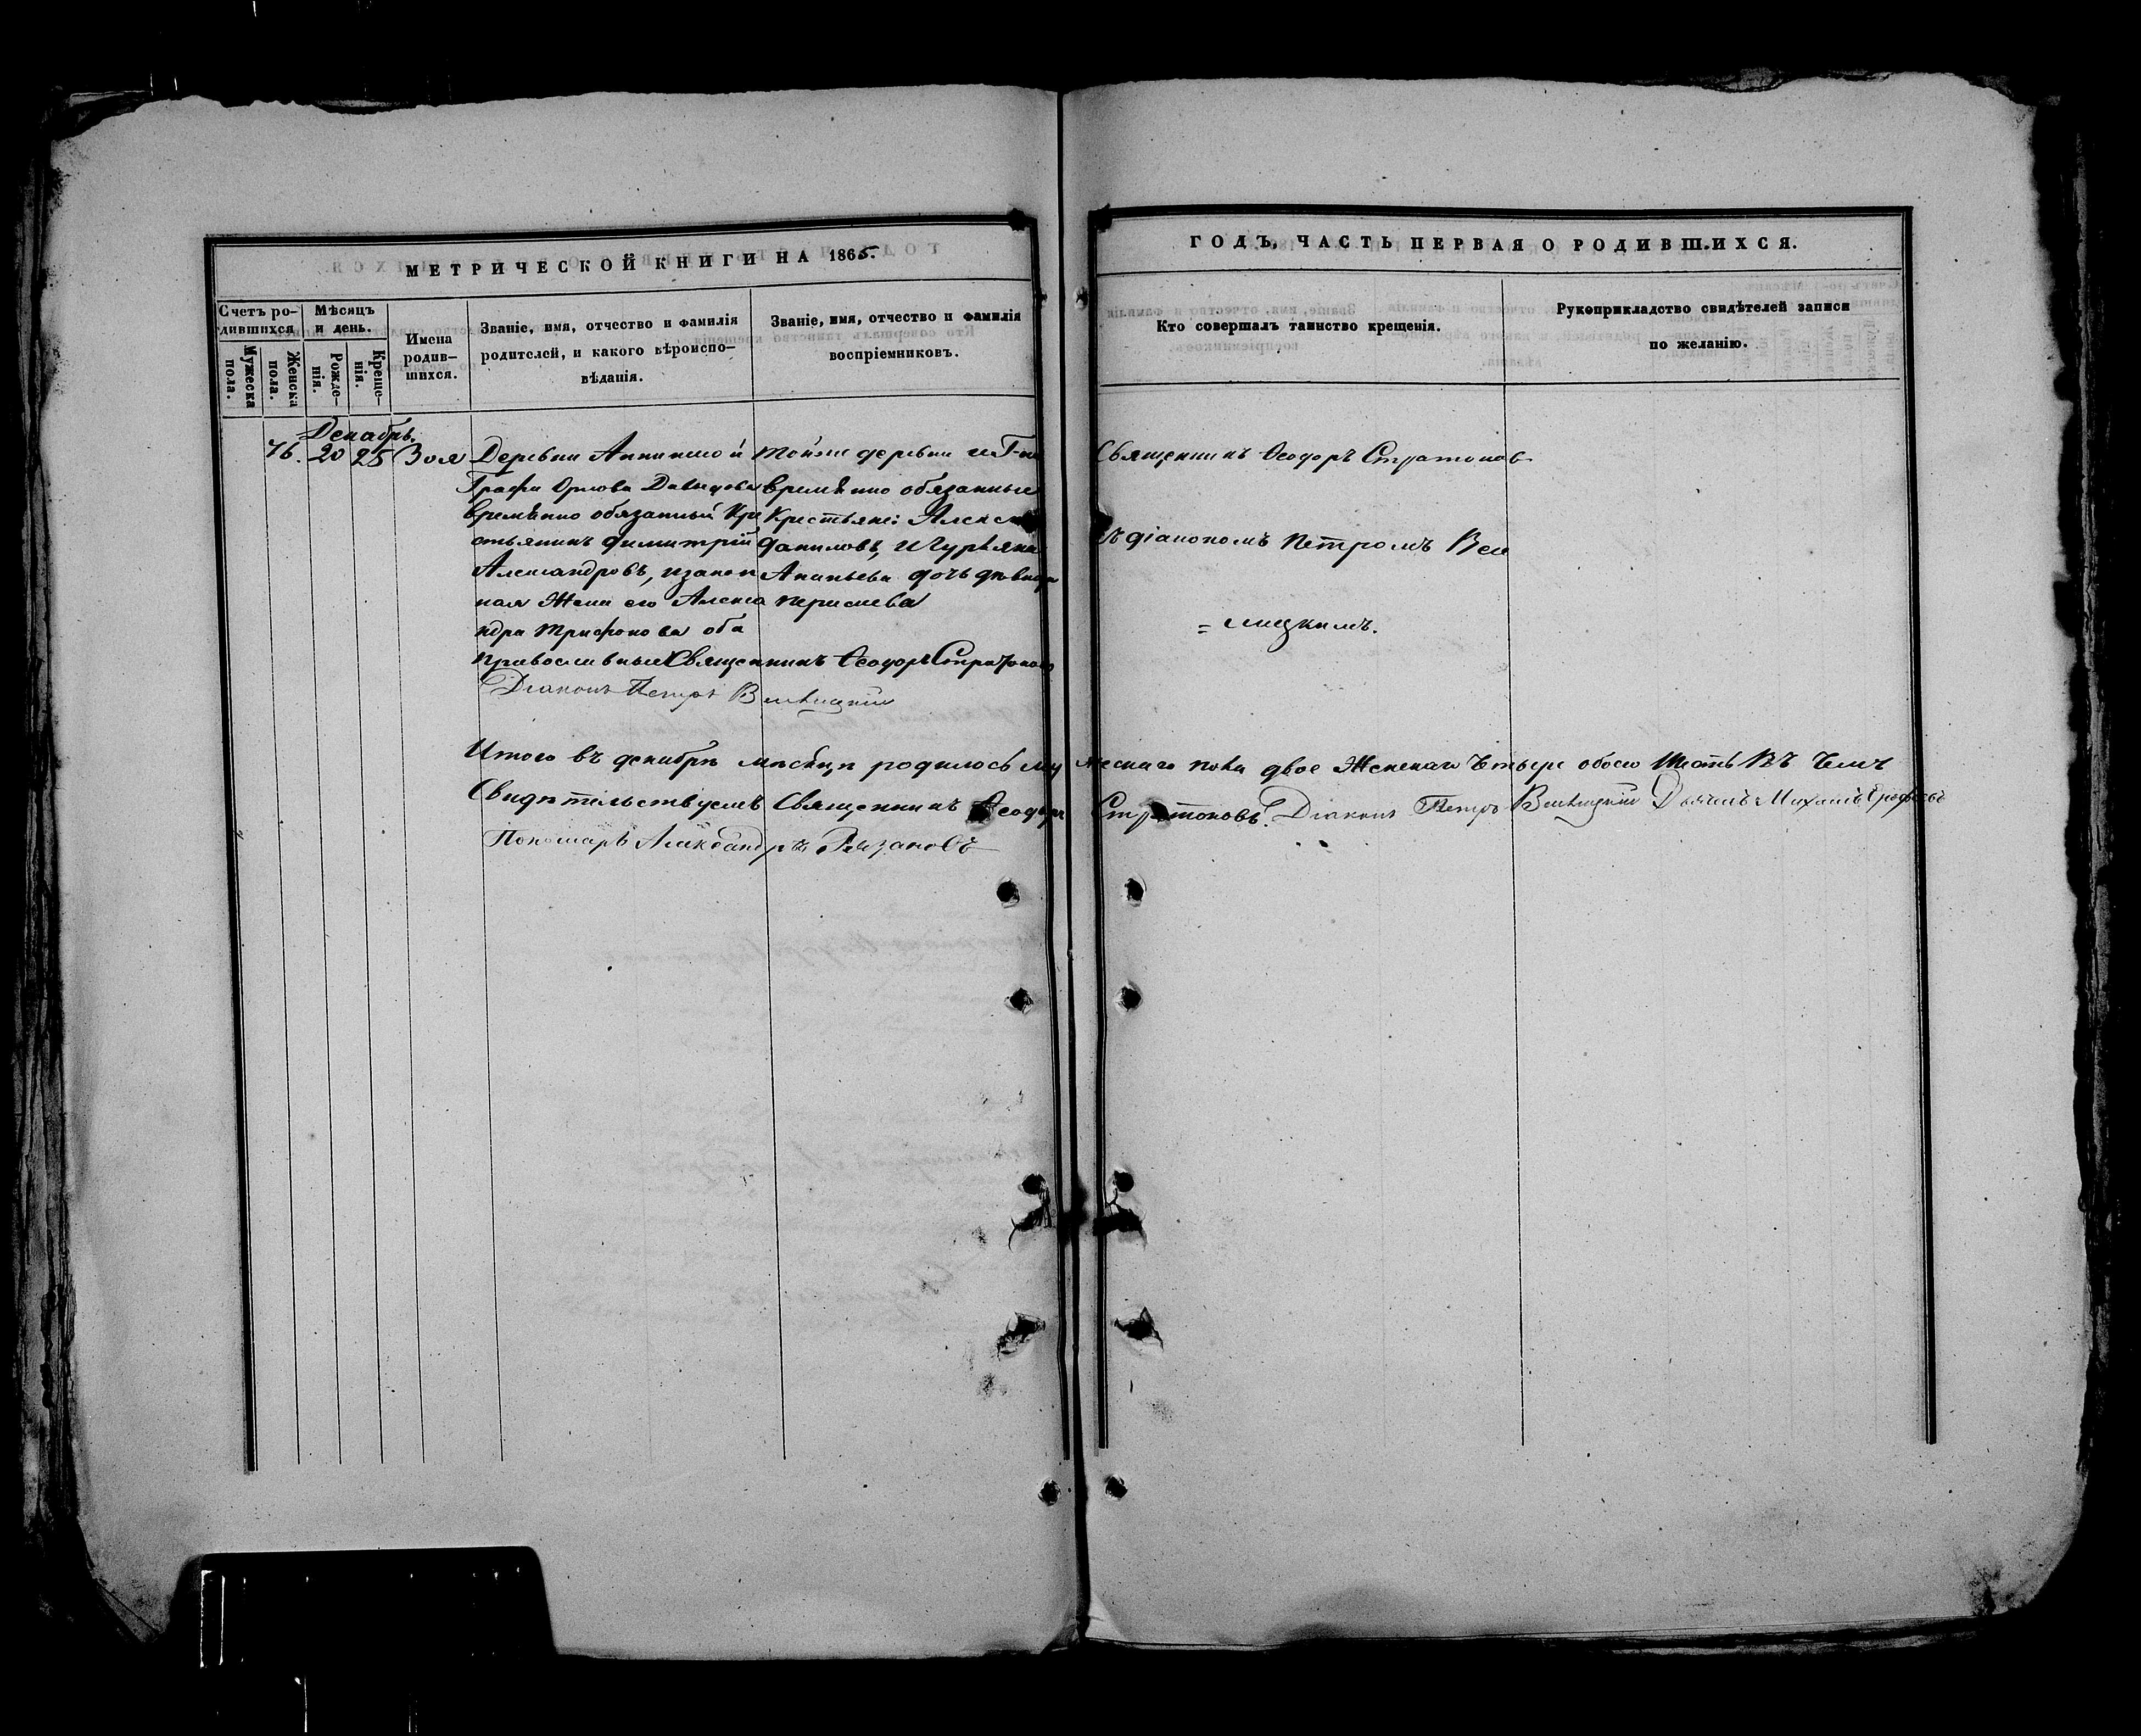 МЕТРИЧЕСКОЙ КНИГИ НА 1865.
ГОДЪ, ЧАСТЬ ПЕРВАЯ О РОДИВШИХСЯ.
Счетъ ро-
дившихся
Мужеска
пола.
Женска
пола.
Мѣсяцъ
и день.
Рожде-
нія.
Креще-
нія.
Имена
родив-
шихся.
Званіе, имя, отчество и фамилія
родителей, и какого вѣроиспо-
вѣданія.
Званіе, имя, отчество и фамилія
воспріемниковъ.
Кто совершалъ таинство крещенія.
Рукоприкладство свидѣтелей записи
по желанію.
Декабрь.
76. 20 25 Зоя
Деревни
Графа Орлова Давыдова
временно обязанный Кре
стьянинъ Димитрій
Александровъ, и закон
ная Жена его Алекса
ндра Трифонова оба
православные
тойже деревни
временно обязанные
Крестьяне:
Даниловъ, и
Ананьева дочь
Священникъ Ѳеодоръ Стратоновъ
Діаконъ Петръ
Священникъ Ѳеодоръ Стратоновъ
съ діакономъ Петромъ
Итого въ декабрѣ мѣсяцѣ родилось му
жескаго пола двое Женскаго Четверо обоего Шесть Въ Чемъ
Свидѣтельствуемъ Священникъ Ѳеодоръ
Стратоновъ. Діаконъ Петръ Дьячекъ Михаилъ
Пономарь Александръ Рязановъ